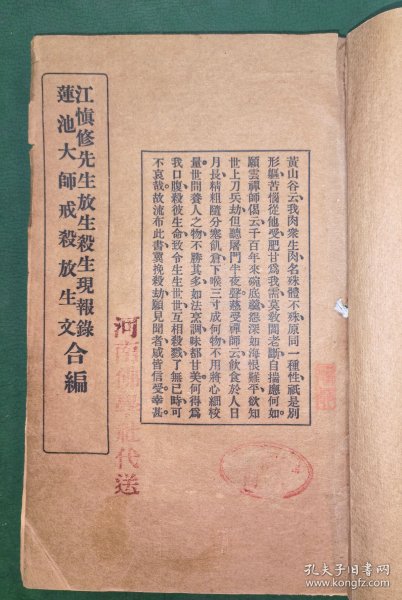 黃山谷云我肉衆生肉名殊體不殊原同一種性祇是別
形軀苦惱從他受肥甘爲我需莫敎閻老斷自揣應何如
願雲禪師偈云千百年來碗底羹怨深如海恨難平欲知
世上刀兵劫但聽屠門半夜聲慈受禪師云飲食於人日
月長精粗隨分塞飢倉下喉三寸成何物不用將心細校
量世間養人之物不勝其多如法烹調味都甘美何得爲
我口腹殺彼生命致令生生世世互相殺戮了無已時可
不哀哉故流布此書冀挽殺劫願見聞者咸皆信受幸甚
河南佛學社代送
江愼修先生放生殺生現報錄
蓮池大師戒殺放生文
合編
孔夫子旧书网
www.kongfz.com